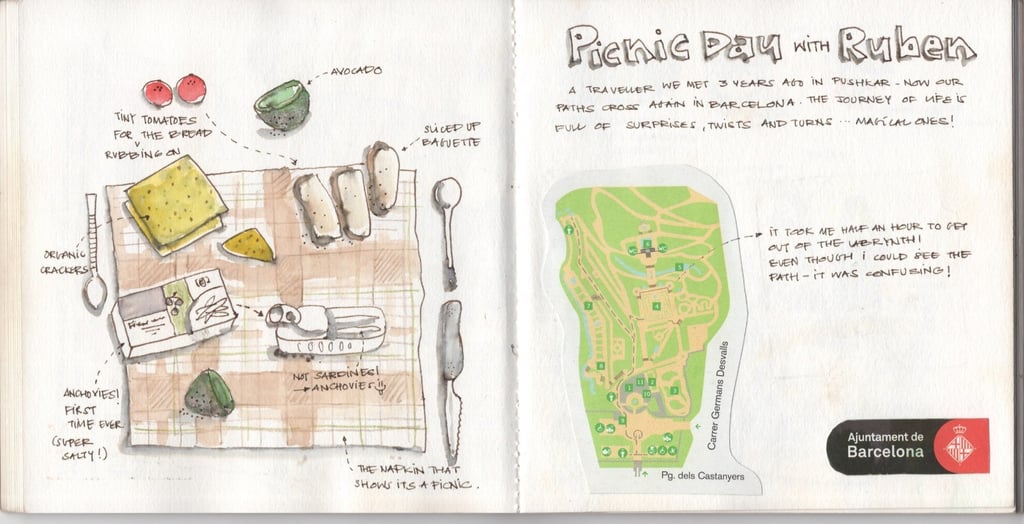 AVOCADO
TINY TOMATOES
FOR THE BREAD
RUBBING ON
SLICED UP
BAGUETTE
ORGANIC
CRACKERS
NOT SARDINES!
ANCHOVIES!!
ANCHOVIES!
FIRST
TIME EVER
(SUPER
SALTY!)
THE NAPKIN THAT
SHOWS ITS A PICNIC.
Picnic Day WITH Ruben
A TRAVELLER WE MET 3 YEARS AGO IN PUSHKAR - NOW OUR
PATHS CROSS AGAIN IN BARCELONA. THE JOURNEY OF LIFE IS
FULL OF SURPRISES, TWISTS AND TURNS ... MAGICAL ONES!
IT TOOK ME HALF AN HOUR TO GET
OUT OF THE LABRYNTH!
EVEN THOUGH I COULD SEE THE
PATH - IT WAS CONFUSING!
Carrer Germans Desvalls
Pg. dels Castanyers
Ajuntament de
Barcelona